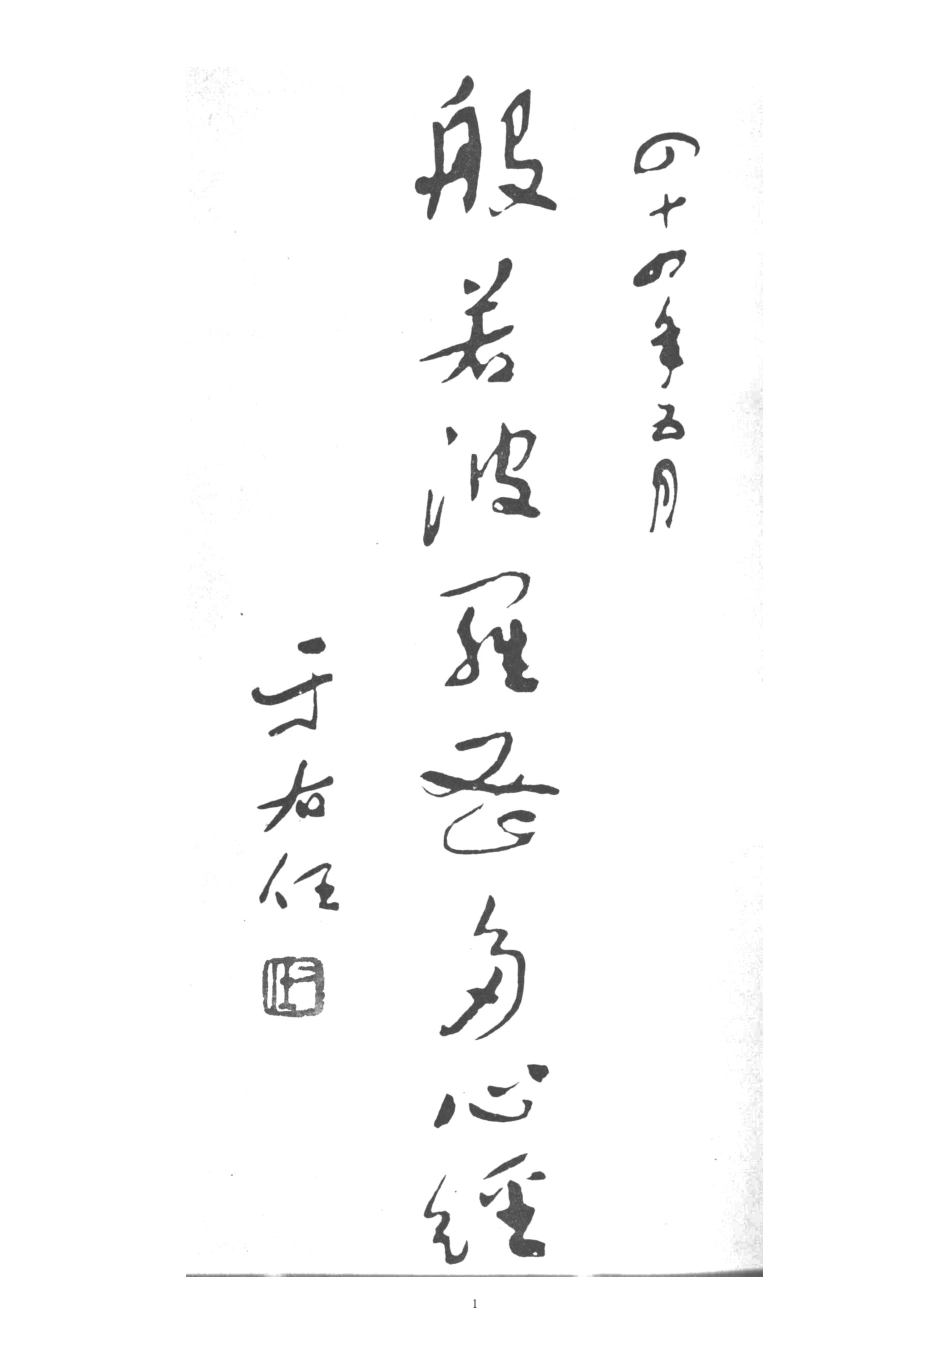 四十四年五月
般若波羅蜜多心經
于右任
1